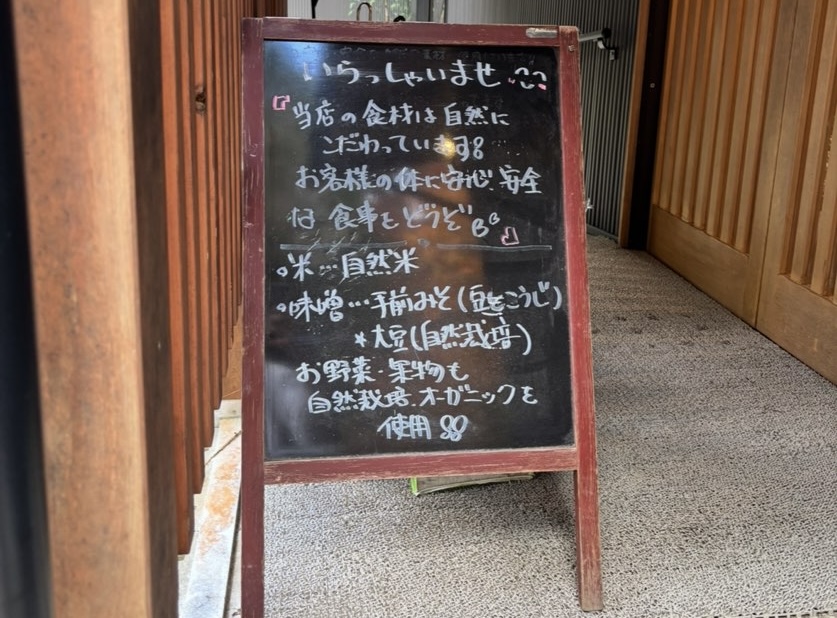 いらっしゃいませ
『当店の食材は自然に
こだわっています
お客様の体に安心、安全
な 食事をどうぞ』
。米…自然米
。味噌…手前みそ(豆をこうじ)
*大豆(自然栽培)
お野菜・果物も
自然栽培、オーガニックを
使用